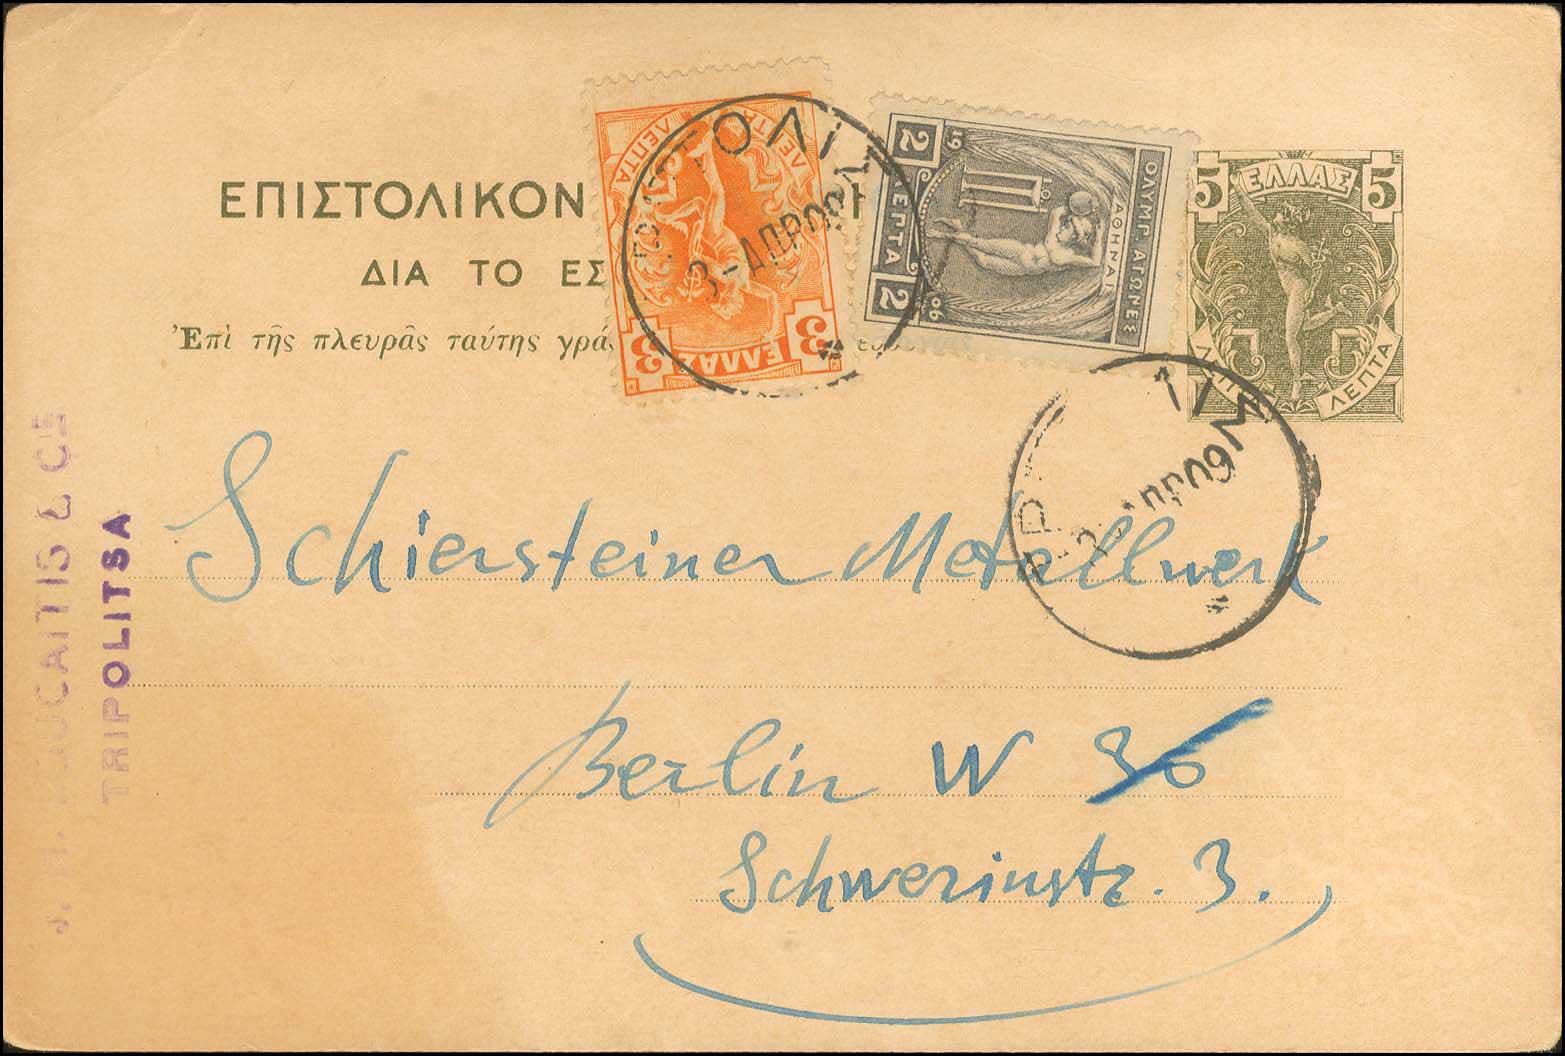 ΕΠΙΣΤΟΛΙΚΟΝ
ΔΙΑ ΤΟ ΕΣ
Ἐπὶ τῆς πλευρᾶς ταύτης γρά
ΕΛΛΑΣ
5 5
ΛΕΠΤΑ
3 ΕΛΛΑΣ 3
ΛΕΠΤΑ ΛΕΠΤΑ
ΟΛΥΜΠ. ΑΓΩΝΕΣ
ΑΘΗΝΑΙ
96
2 ΛΕΠΤΑ 2
& CIE
TRIPOLITSA
Schiersteiner Metallwerk
Berlin W 36
Schwerinstr. 3.